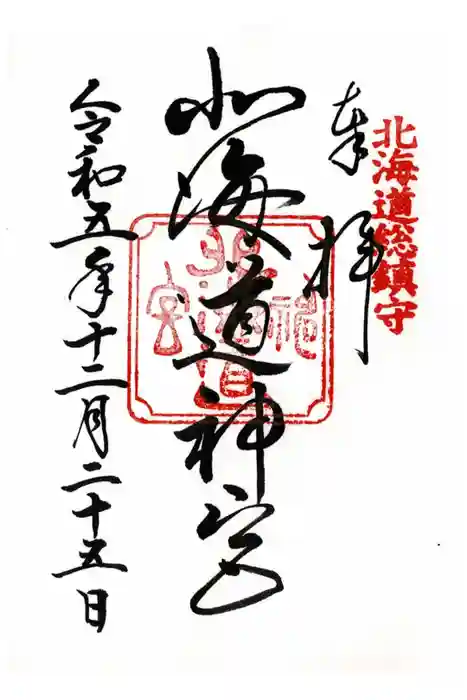 北海道総鎮守
奉拝
北海道神宮
令和五年十二月二十五日